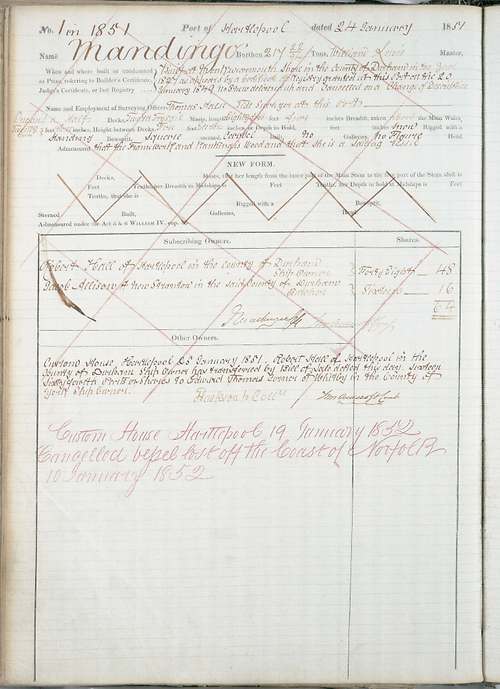 No. 1 on 1851 Port of Hartlepool dated 24 January 1851
Name Mandingo Burthen Tons, William Master,
When and where built or condemned Built at Monkwearmouth Shore in the County of Durham in the Year
as Prize, referring to Builder's Certificate, 1837 as appears by a Certificate of Registry granted at this Port on the 20
Judge's Certificate, or last Registry January 1849 now delivered up and Cancelled on a Change of Description
Name and Employment of Surveying Officer Thomas Tide Surveyor at this Port
Decks, Masts, length feet inches, Breadth taken above the Main Wales,
feet inches, Height between Decks feet inches or Depth in Hold, Snow Rigged with a
Standing Bowsprit, Square sterned Carvel built, no Galleries, no Figure Head
Admeasured that the Framework and Planking is Wood and that she is a Sailing Vessel
NEW FORM.
Decks, Masts, that her length from the inner part of the Main Stem to the fore part of the Stern Post is
Feet Tenths, her Breadth in Midships is Feet Tenths, her Depth in Hold at Midships is Feet
Tenths, that she is Rigged with a Bowsprit,
Sterned Built, Galleries, Head
Admeasured under the Act 5 & 6 WILLIAM IV. cap. 56
Subscribing Owners. Shares.
Robert Hall of Hartlepool in the County of Durham
Ship Owner Forty Eight 48
Jacob Allison of New Shildon in the said County of Durham
Sixteen 16
64
Other Owners.
Custom House, Hartlepool 25 January 1851. Robert Hall of Hartlepool in the
County of Durham Ship Owner has transferred by Bill of Sale dated this day Sixteen
Sixty fourth Parts or Shares to Edward Thomas Turner of Whitby in the County of
York Ship Owner.
Custom House Hartlepool 19 January 1852
Cancelled Vessel lost off the Coast of Norfolk
10 January 1852